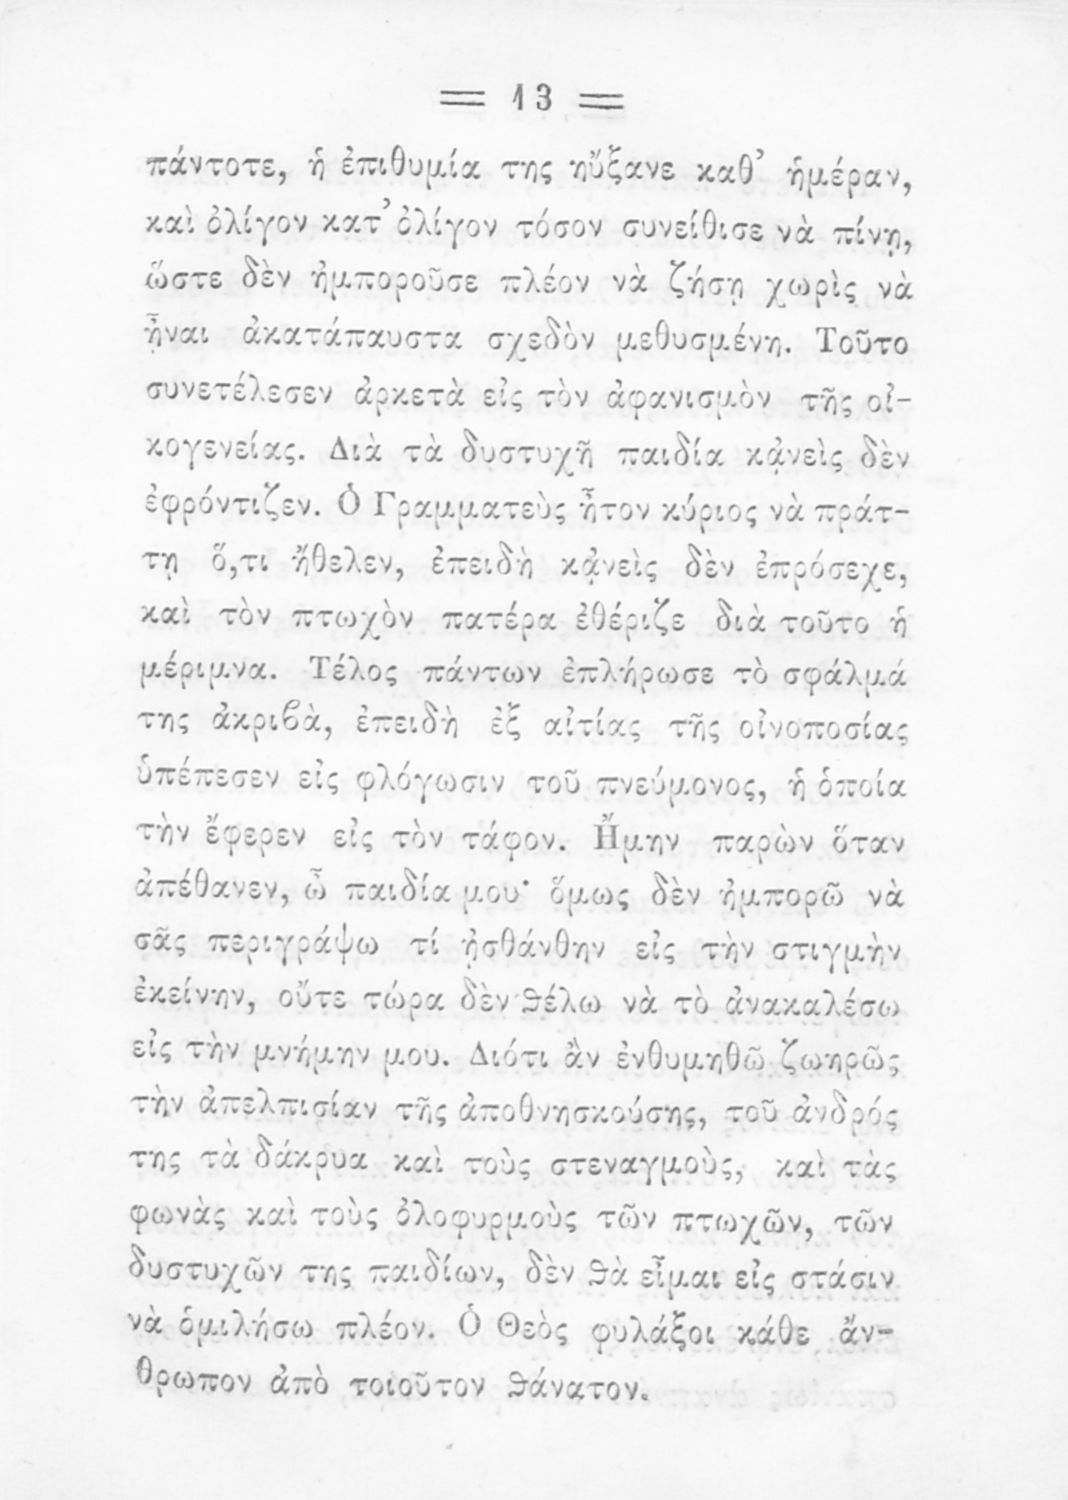 = 13 =
πάντοτε, ἡ ἐπιθυμία της ηὔξανε καθ’ ἡμέραν,
καὶ ὀλίγον κατ’ ὀλίγον τόσον συνείθισε νὰ πίνῃ,
ὥστε δὲν ἠμποροῦσε πλέον νὰ ζήσῃ χωρὶς νὰ
ᾖναι ἀκατάπαυστα σχεδὸν μεθυσμένη. Τοῦτο
συνετέλεσεν ἀρκετὰ εἰς τὸν ἀφανισμὸν τῆς οἰ-
κογενείας. Διὰ τὰ δυστυχῆ παιδία κᾀνεὶς δὲν
ἐφρόντιζεν. Ὁ Γραμματεὺς ἦτον κύριος νὰ πράτ-
τῃ ὅ,τι ἤθελεν, ἐπειδὴ κᾀνεὶς δὲν ἐπρόσεχε,
καὶ τὸν πτωχὸν πατέρα ἐθέριζε διὰ τοῦτο ἡ
μέριμνα. Τέλος πάντων ἐπλήρωσε τὸ σφάλμά
της ἀκριϐὰ, ἐπειδὴ ἐξ αἰτίας τῆς οἰνοποσίας
ὑπέπεσεν εἰς φλόγωσιν τοῦ πνεύμονος, ἡ ὁποία
τὴν ἔφερεν εἰς τὸν τάφον. Ἤμην παρὼν ὅταν
ἀπέθανεν, ὦ παιδία μου· ὅμως δὲν ἠμπορῶ νὰ
σᾶς περιγράψω τί ᾐσθάνθην εἰς τὴν στιγμὴν
ἐκείνην, οὔτε τώρα δὲν ϑέλω νὰ τὸ ἀνακαλέσω
εἰς τὴν μνήμην μου. Διότι ἂν ἐνθυμηθῶ ζωηρῶς
τὴν ἀπελπισίαν τῆς ἀποθνησκούσης, τοῦ ἀνδρός
της τὰ δάκρυα καὶ τοὺς στεναγμοὺς, καὶ τὰς
φωνὰς καὶ τοὺς ὀλοφυρμοὺς τῶν πτωχῶν, τῶν
δυστυχῶν της παιδίων, δὲν ϑὰ εἶμαι εἰς στάσιν
νὰ ὁμιλήσω πλέον. Ὁ Θεὸς φυλάξοι κάθε ἄν-
θρωπον ἀπὸ τοιοῦτον ϑάνατον.